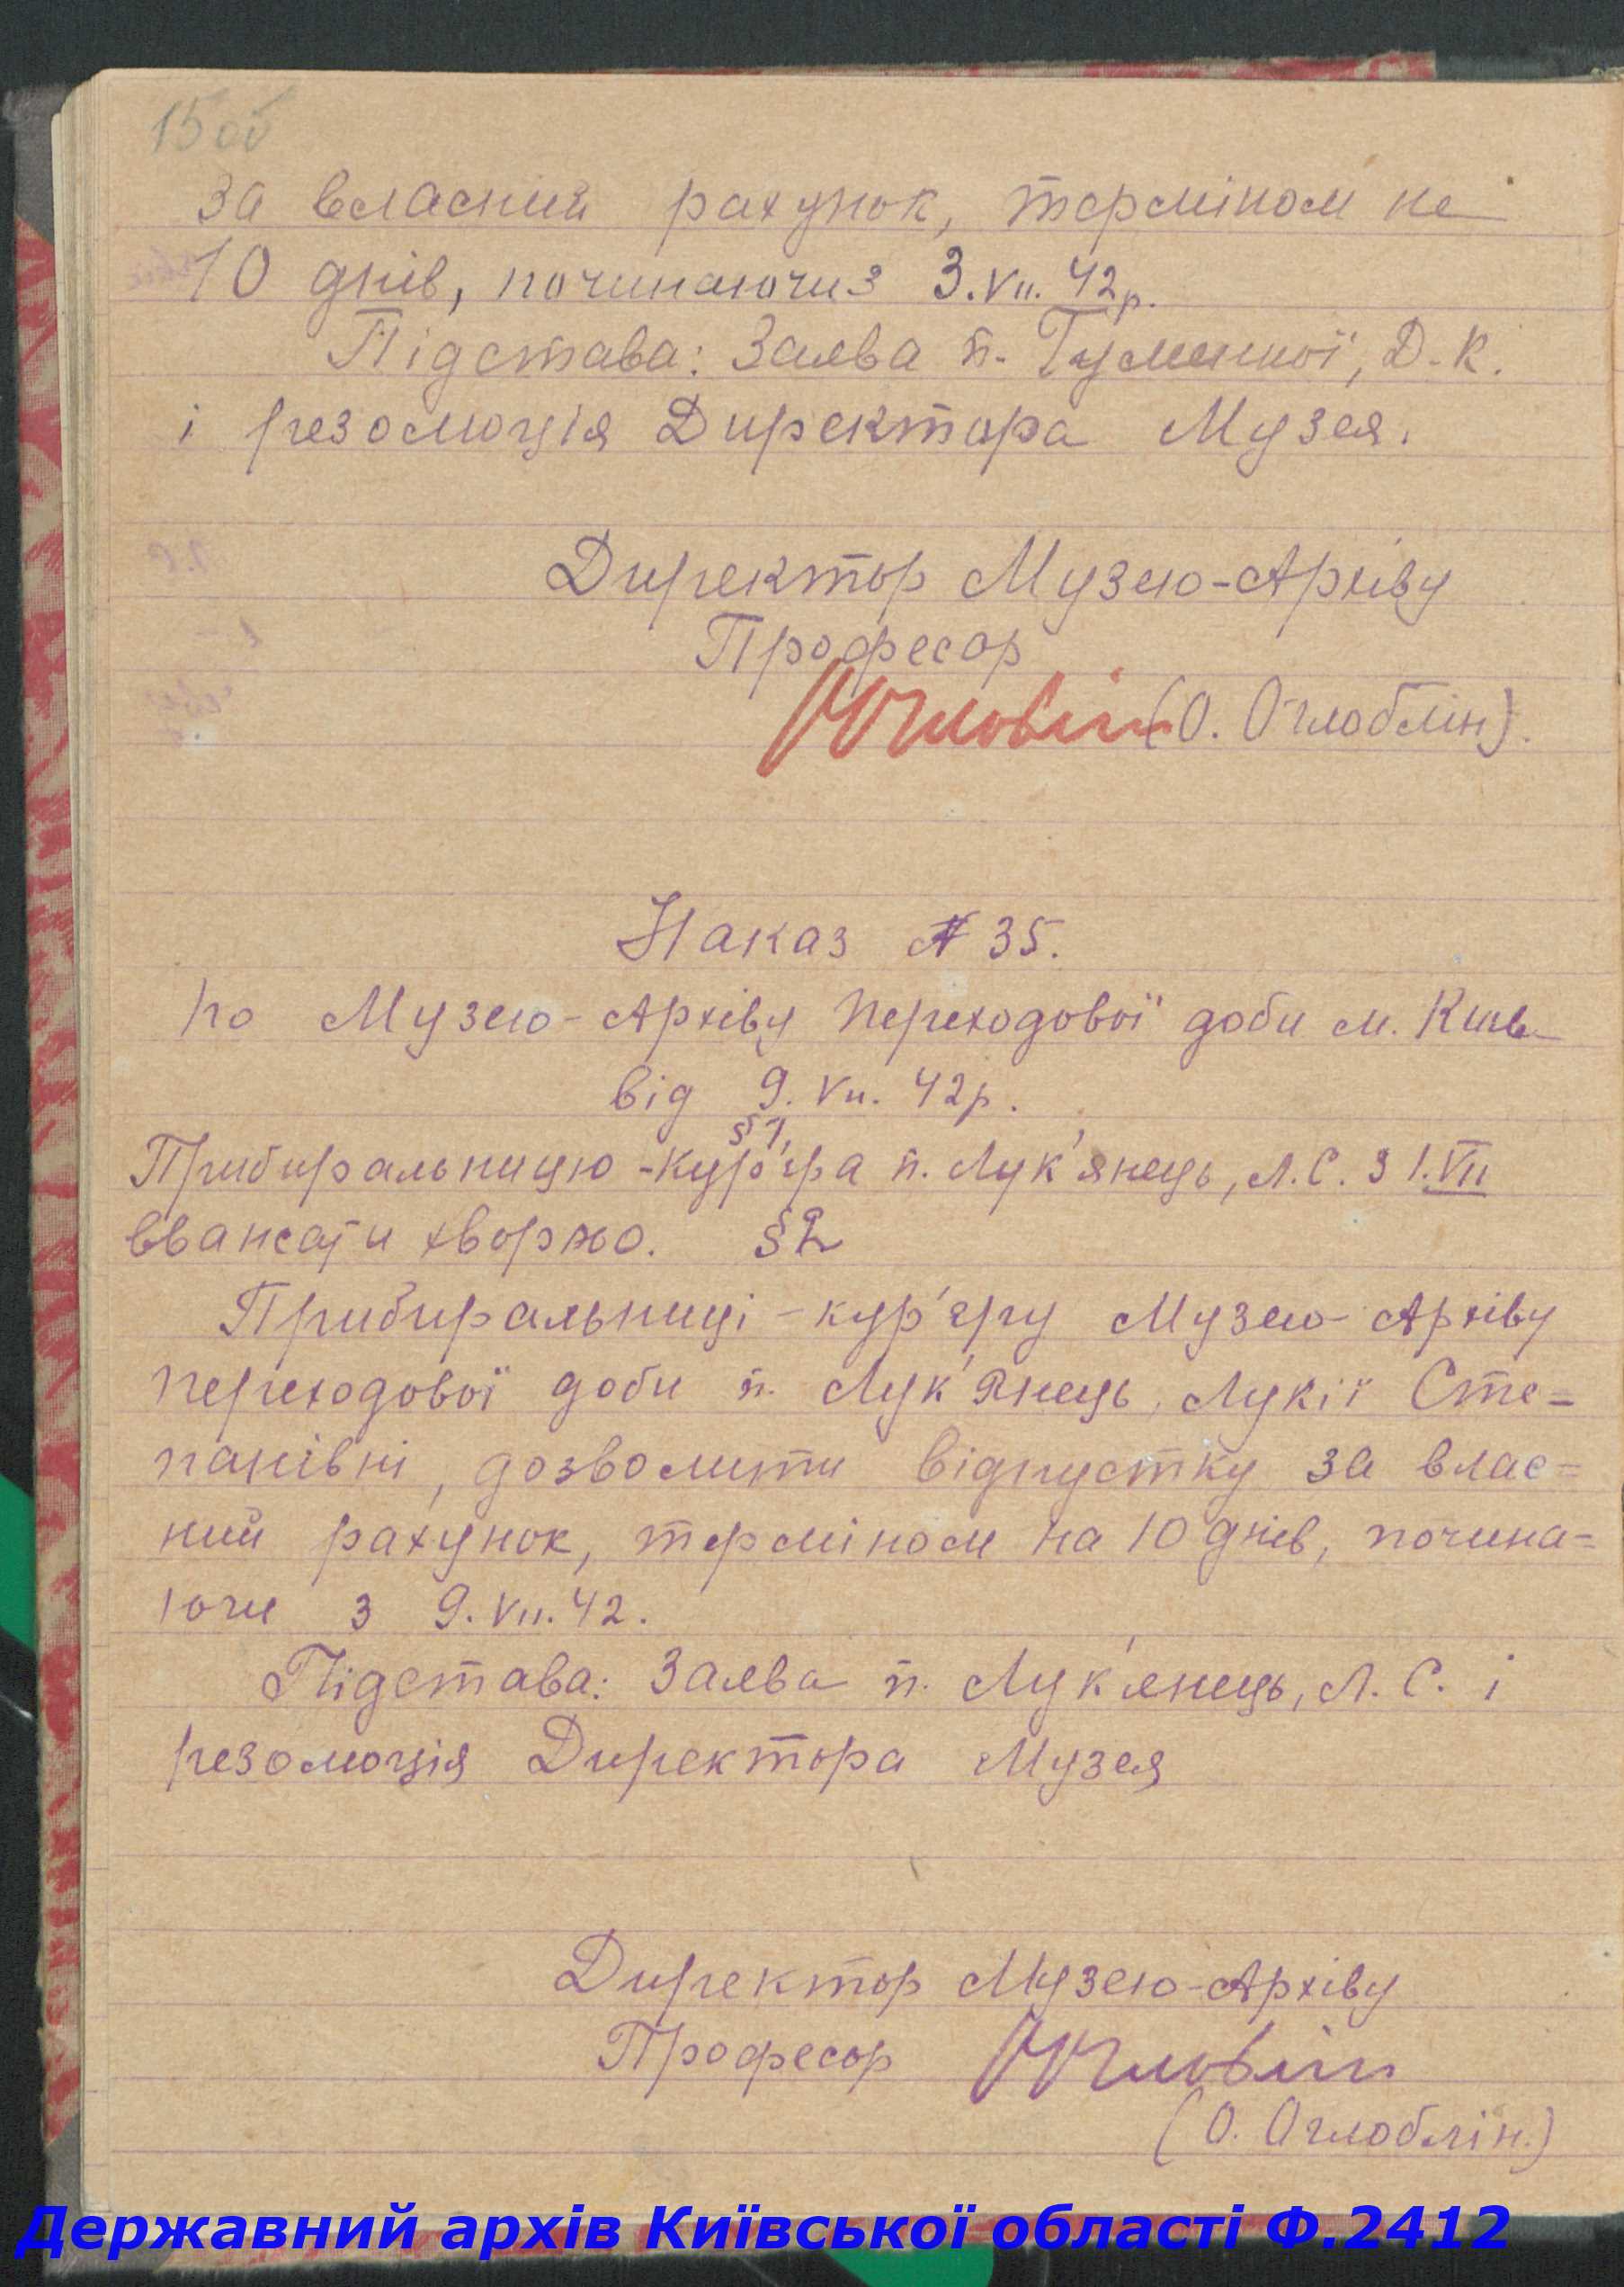 15 об
за власний рахунок, терміном не
10 днів, починаючи з 3.VII. 42 р.
Підстава: Заява п. Гуменної, Д. К.
і резолюція Директора Музея.
Директор Музею-Архіву
Професор
(О. Оглоблін).
Наказ № 35.
по Музею-Архіву Переходової доби м. Київ
від 9. VII. 42 р.
§ 1,
Прибиральницю-кур'єра п. Лук'янець, Л. С. з 1.VII
вважати хворою. § 2
Прибиральниці-кур'єру Музею-Архіву
Переходової доби п. Лук'янець, Лукії Сте=
панівні, дозволити відпустку за влас=
ний рахунок, терміном на 10 днів, почина=
ючи з 9. VII. 42.
Підстава: Заява п. Лук'янець, Л. С. і
резолюція Директора Музея
Директор Музею-Архіву
Професор
(О. Оглоблін.)
Державний архів Київської області Ф.2412